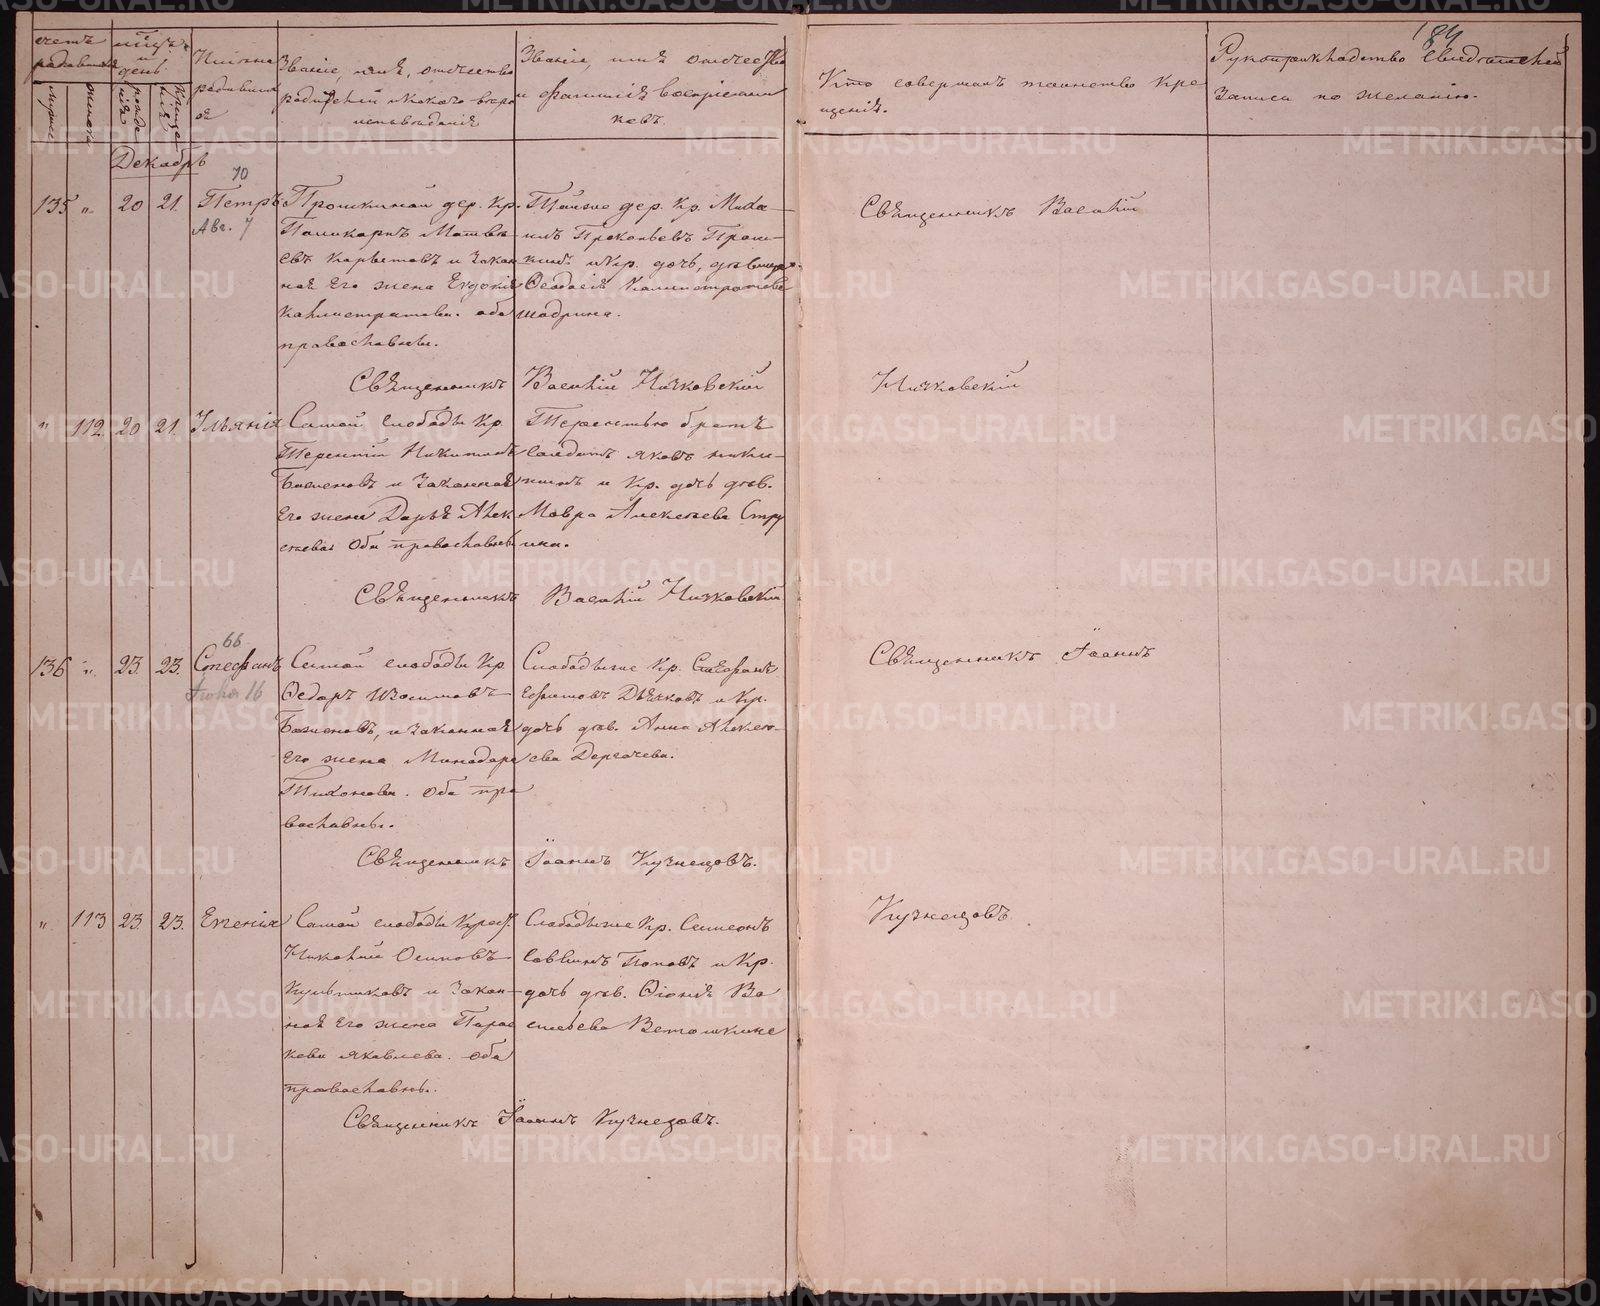 184
счетъ родившихся
мужеска
женска
мѣсяцъ и день
рожденія
крещенія
Имена родивших ся
Званіе, имя, отчество
родителей и какого вѣро
исповѣданія
Званіе, имя отчество
и фамилія воспріемни
ковъ.
Кто совершалъ таинство кре
щенія.
Рукоприкладство свидѣтелей
записи по желанію.
Декабрь
70
135 „ 20 21. Петръ
Авг. 7
Прошкиной дер. Кр.
Поликарпъ Матвѣ
евъ и закон
ная его жена Евдокія
Калистратова. оба
православны.
Тойже дер. Кр. Миха
илъ Прокопьевъ Прош
кинъ и Кр. дочь, дѣвица
Ѳеодосія Калистратова
Шадрина.
Священникъ Василій
Священникъ Василій Ничковскій
Ничковскій
„ 112 20 21. Ульянія
Самой слободы Кр.
Терентій Никитинъ
Баженовъ и законная
его жена Дарья Алек
сѣева Оба православны
Терентью братъ
солдатъ Яковъ Ники
тинъ и Кр. дочь дѣв.
Мавра Алексѣева Стру
ина.
Священникъ Василій Ничковскій
66
136 „ 23. 23. Стефанъ
Самой слободы Кр
Ѳедоръ Изосимовъ
Баженовъ, и законная
его жена Минодора
Тихонова. Оба пра
вославны.
Слободы же Кр. Стефанъ
Ефимовъ Дьячковъ и Кр.
дочь дѣв. Анна Алексѣ
ева Дергачева.
Священникъ Іоаннъ
Священникъ Іоаннъ Кузнецовъ.
Кузнецовъ
„ 113 23. 23. Евгенія
Самой слободы Крест.
Николай Осиповъ
Культиковъ и закон
ная его жена Парас
кева Яковлева. оба
православны.
Слободы же Кр. Семеонъ
Саввинъ Поповъ и Кр.
дочь дѣв. Ѳіонія Ва
сильева Ветошкина
Священникъ Іоаннъ Кузнецовъ.
METRIKI.GASO-URAL.RU